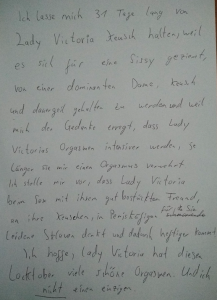 Ich lasse mich 31 Tage lang von
Lady Victoria keusch halten, weil
es sich für eine Sissy geziemt,
von einer dominanten Dame, keusch
und dauergeil gehalten zu werden und weil
mich der Gedanke erregt, dass Lady
Victorias Orgasmen intensiver werden, je
länger sie mir einen Orgasmus verwehrt
Ich stelle mir vor, dass Lady Victoria
beim Sex mit ihrem gut bestückten Freund,
an ihre Keuschen, im Peniskäfigen für Sie
Leidene Sklaven denkt und dadurch heftiger kommt
Ich hoffe, Lady Victoria hat diesen
Locktober viele schöne Orgasmen. Und ich
nicht einen einzigen